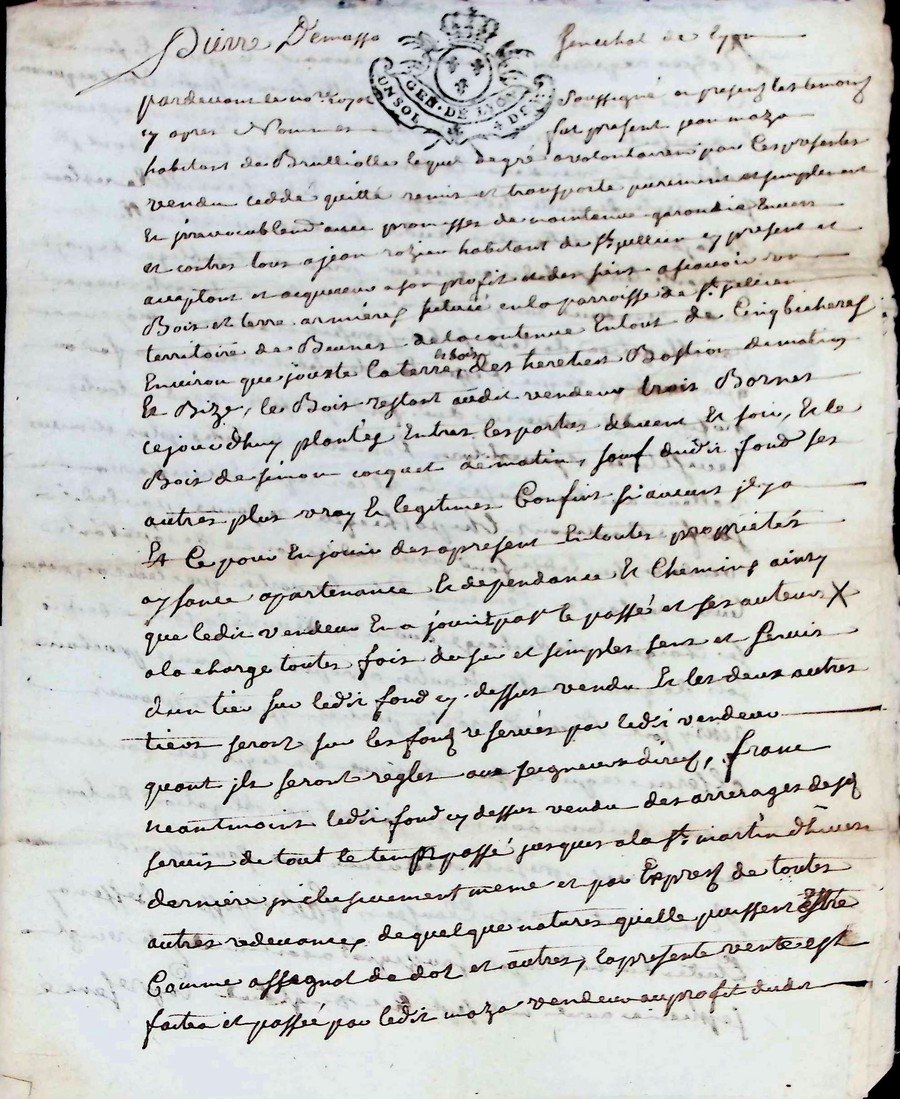 Pierre Demasso senechal de Lyon
GEN. DE LYON
UN SOL 4 D.
pardevant le no.re Royal soussigné en presence les temoins
cy apres Nommes fut present jean maza
habitant de Brulliolles lequel de gré a volontairem par Ces presentes
vendu ceddé quitté remis et transporté purement et simplement
Et jrrevocablem avec promesses de maintenue garendie Envers
et contres tous a jean rozier habitant de st. jullien cy present et
aceptant et acquereur a son profit et des siens a scavoir un
Bois et terre armieres scitué en la parroisse de st. jullien
territoire de Brunes de la contenue Entout de Cinq bicherés
Environ que jouxte la terre et bois des heretiers Bastion de matin
Et Bize, le Bois restant audit vendeur trois Bornes
cejourdhuy plantés Entres les parties de vent Et soir, Et le
Bois de simon cocquet de matin, sauf dudit fond ses
autres plus vray Et legitimes Confins si aucuns jl y a
Et Ce pour En jouir des apresent En toutes proprietés
aysance apartenance Et dependance Et Chemins ainsy
que ledit vendeur En a jouit par le passé et ses auteurs X
a la charge toutes fois du sur et simples sens et servis
dun tier sur ledit fond cy dessus vendu Et les deux autres
tiers seront sur les fonds reservés par ledit vendeur
quant jls seront règles aux seigneurs direts, franc
neantmoins ledit fond cy dessus vendu des arrerages desd
servis de tout le temp passé jusques a la st. martin dhivers
derniere jnclusivement meme et par Expres de toutes
autres redevances de quelque natures quelle puissent Estre
Comme assagnat de dot et autres, la presente vente est
faitea et passée par ledit maza vendeur au profit dudit